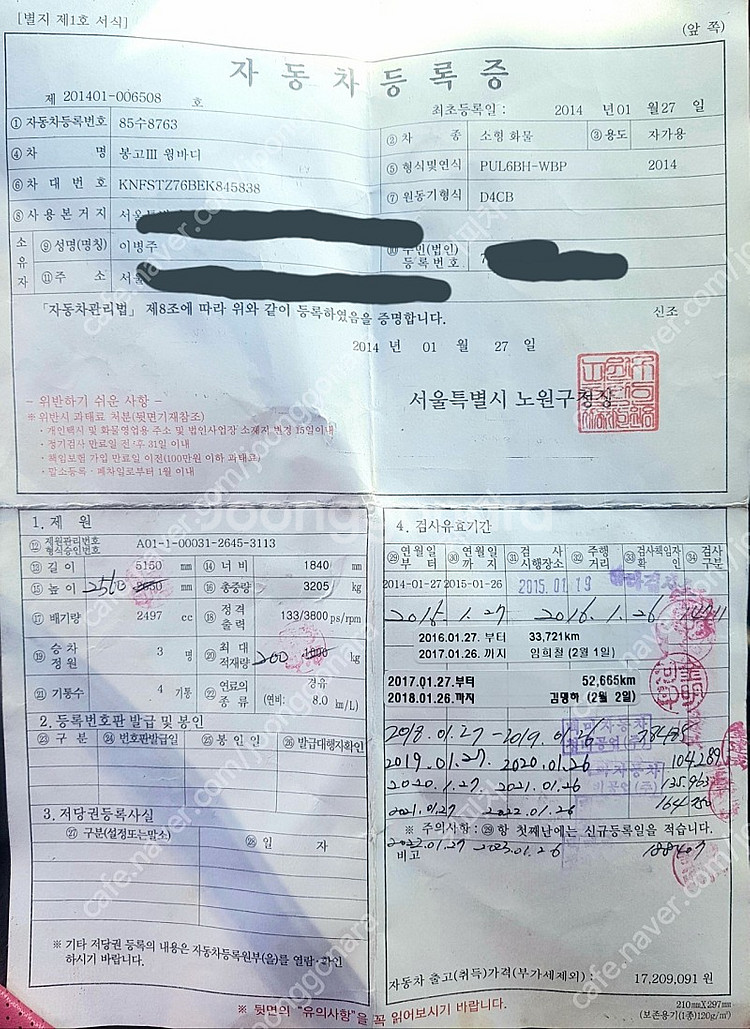 [별지 제1호 서식]
(앞 쪽)
자 동 차 등 록 증
제 201401-006508 호
최초등록일 : 2014 년 01 월 27 일
① 자동차등록번호 85수8763
② 차 종 소형 화물 ③ 용도 자가용
④ 차 명 봉고III 윙바디
⑤ 형식및연식 PUL6BH-WBP 2014
⑥ 차 대 번 호 KNFSTZ76BEK845838
⑦ 원동기형식 D4CB
⑧ 사 용 본 거 지 서울
소유자
⑨ 성명(명칭) 이병주
⑩ 주민(법인)등록번호 7
⑪ 주 소 서울
「자동차관리법」 제8조에 따라 위와 같이 등록하였음을 증명합니다.
신조
2014 년 01 월 27 일
서울특별시 노원구청장
- 위반하기 쉬운 사항 -
※ 위반시 과태료 처분(뒷면기재참조)
· 개인택시 및 화물영업용 주소 및 법인사업장 소재지 변경 15일이내
· 정기검사 만료일 전·후 31일 이내
· 책임보험 가입 만료일 이전(100만원 이하 과태료)
· 말소등록 · 폐차일로부터 1월 이내
1. 제 원
⑫ 제원관리번호 형식승인번호 A01-1-00031-2645-3113
⑬ 길 이 5150 mm ⑭ 너 비 1840 mm
⑮ 높 이 2560 mm ⑯ 총중량 3205 kg
⑰ 배기량 2497 cc ⑱ 정격출력 133/3800 ps/rpm
⑲ 승차정원 3 명 ⑳ 최대적재량 200 kg
㉑ 기통수 4 기통 ㉒ 연료의 종류 경유 (연비: 8.0 km/L)
2. 등록번호판 발급 및 봉인
㉓ 구 분 ㉔ 번호판발급일 ㉕ 봉 인 일 ㉖ 발급대행자확인
3. 저당권등록사실
㉗ 구분(설정또는말소) ㉘ 일 자
※ 기타 저당권 등록의 내용은 자동차등록원부(을)를 열람·확인
하시기 바랍니다.
4. 검사유효기간
㉙ 연월일부터 ㉚ 연월일까지 ㉛ 검사시행장소 ㉜ 주행거리 ㉝ 검사책임자확인 ㉞ 검사구분
2014-01-27 2015-01-26 2015.01.19
2015. 1. 27 2016. 1. 26
2016.01.27. 부터 33,721km
2017.01.26. 까지 임희철 (2월 1일)
2017.01.27.부터 52,665km
2018.01.26.까지 김명하 (2월 2일)
2018.01.27 - 2019.01.26
2019.01.27. 2020.01.26 104289
2020.1.27. 2021.01.26
2021.01.27 2022.01.26
※ 주의사항 : ㉙ 항 첫째난에는 신규등록일을 적습니다.
비고 2022.01.27 2023.01.26 188407
자동차 출고(취득)가격(부가세제외) : 17,209,091 원
210mm×297mm
(보존용기(1종)120g/㎡)
※ 뒷면의 "유의사항"을 꼭 읽어보시기 바랍니다.
cafe.naver.com/joonggonara
joonggonara